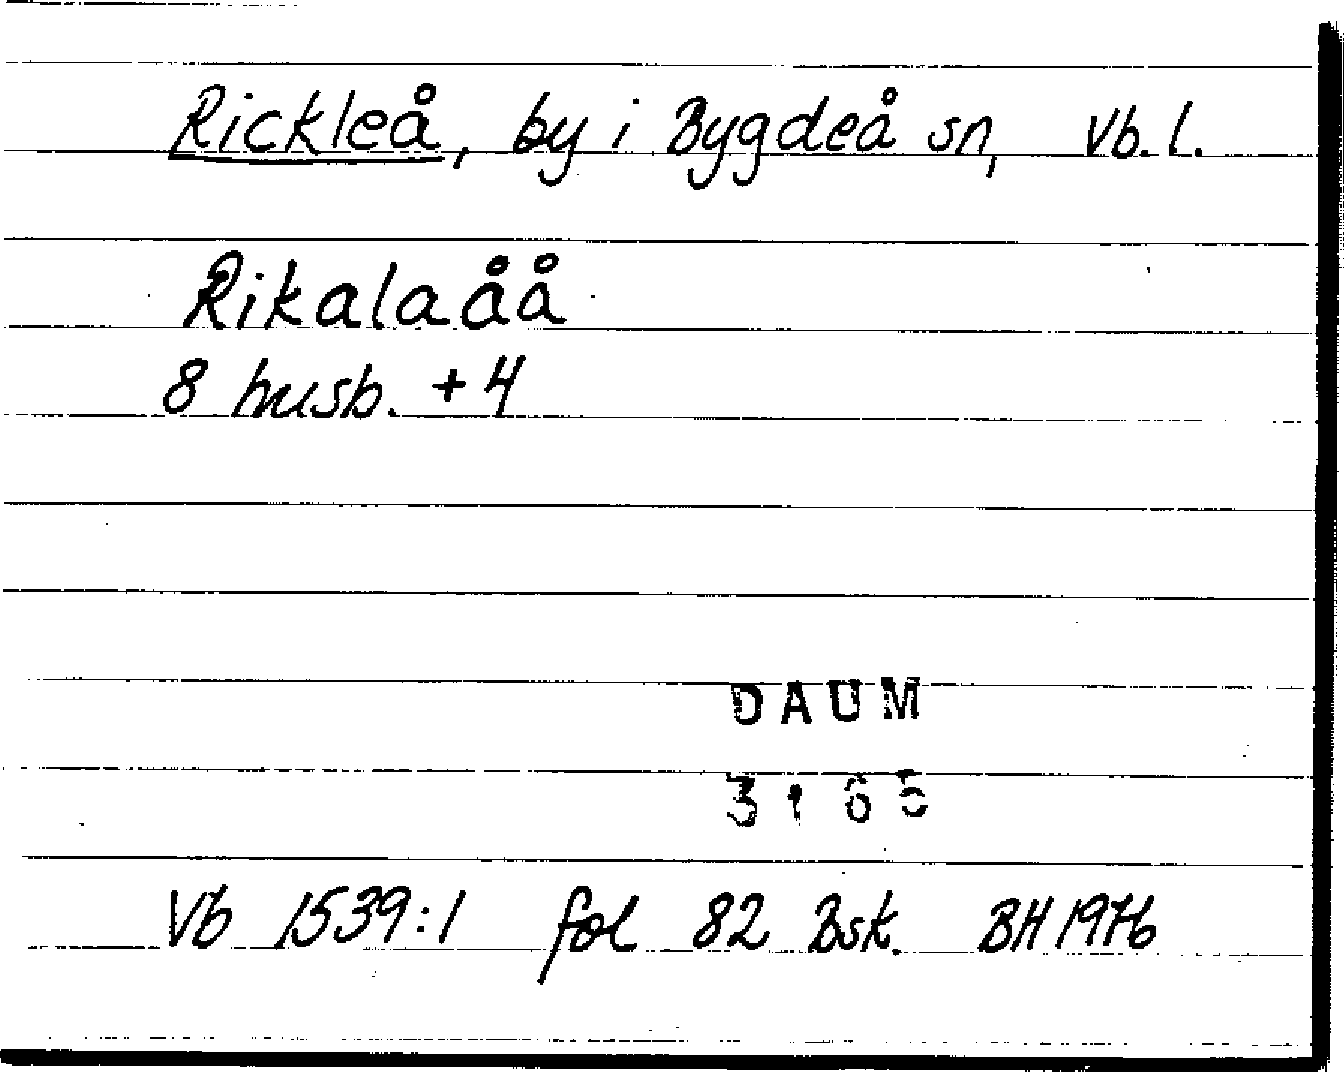 Rickleå, by i Bygdeå sn, Vb. l.
Rikalaåå
8 husb. + 4
DAUM
3165
Vb 1539:1 fol 82 Bsk. BH 1976